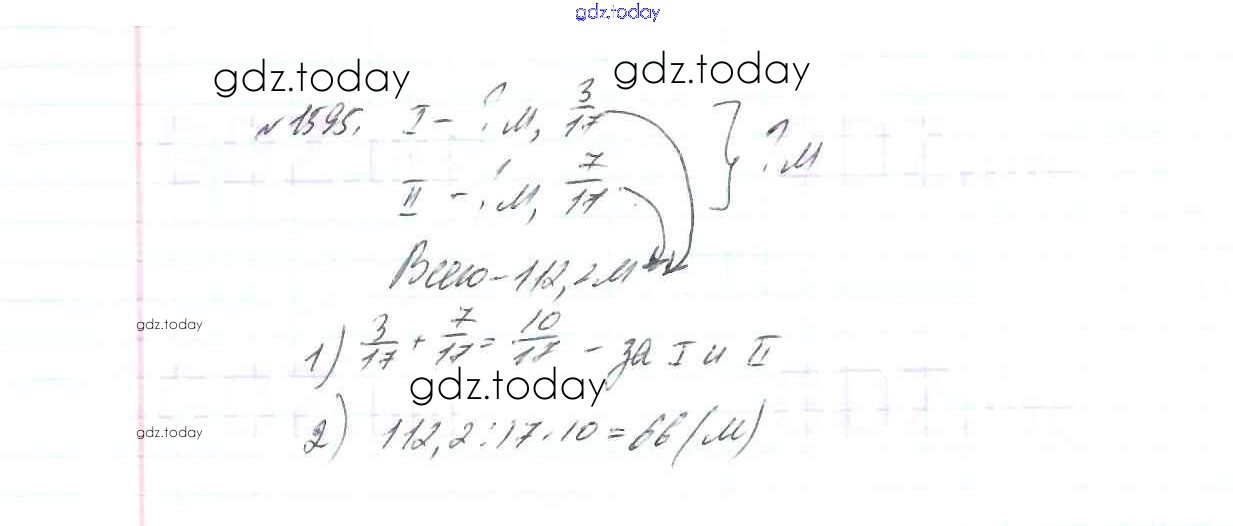 gdz.today
gdz.today gdz.today
№1595. I - ? м, 3/17
} ? м
II - ? м, 7/17
Всего - 112,2 м
gdz.today
1) 3/17 + 7/17 = 10/17 - за I и II
gdz.today
gdz.today
2) 112,2 : 17 · 10 = 66 (м)